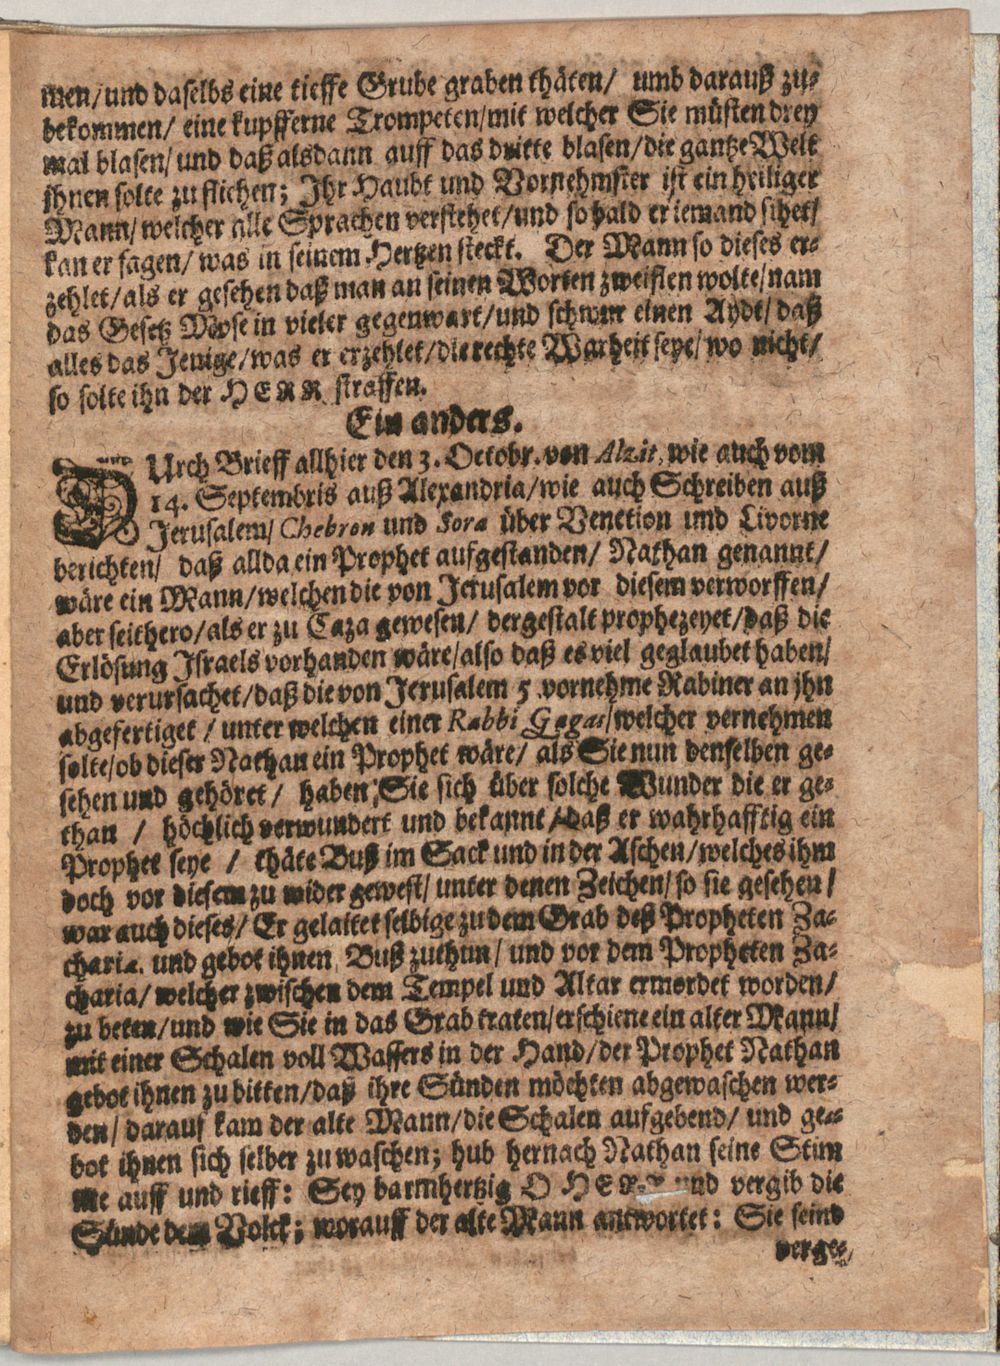 men/und daselbs eine tieffe Grube graben thäten/ umb darauß zu-
bekommen/ eine kupfferne Trompeten/mit welcher Sie müsten drey
mal blasen/ und daß alsdann auff das dritte blasen/die gantze Welt
ihnen solte zu fliehen; Ihr Haubt und Vornehmster ist ein heiliger
Mann/ welcher alle Sprachen verstehet/und so bald er iemand sihet/
kan er sagen/ was in seinem Hertzen steckt. Der Mann so dieses er-
zehlet/als er gesehen daß man an seinen Worten zweiflen wolte/nam
das Gesetz Mose in vieler gegenwart/und schwur einen Aydt/ daß
alles das Jenige/was er erzehlet/die rechte Warheit seye/ wo nicht/
so solte ihn der HERR straffen.
Ein anders.
DUrch Brieff allhier den 3. Octobr. von Alzit, wie auch vom
14. Septembris auß Alexandria/wie auch Schreiben auß
Jerusalem/ Chebron und Sora über Venetion und Livorne
berichten/ daß allda ein Prophet aufgestanden/ Nathan genannt/
wäre ein Mann/welchen die von Jerusalem vor diesem verworffen/
aber seithero/als er zu Caza gewesen/ dergestalt prophezeyet/daß die
Erlösung Israels vorhanden wäre/also daß es viel geglaubet haben/
und verursachet/daß die von Jerusalem 5 vornehme Rabiner an jhn
abgefertiget / unter welchen einer Rabbi Gagas/welcher vernehmen
solte/ob dieser Nathan ein Prophet wäre/ als Sie nun denselben ge-
sehen und gehöret / haben Sie sich über solche Wunder die er ge-
than / höchlich verwundert und bekannt / daß er wahrhafftig ein
Prophet seye / thäte Buß im Sack und in der Aschen/welches ihm
doch vor diesem zu wider gewest/ unter denen Zeichen/ so sie gesehen /
war auch dieses/ Er gelaitet selbige zu dem Grab deß Propheten Za-
charia. und gebot ihnen Buß zuthun/ und vor dem Propheten Za-
charia/ welcher zwischen dem Tempel und Altar ermordet worden/
zu beten/und wie Sie in das Grab traten/erschiene ein alter Mann/
mit einer Schalen voll Wassers in der Hand/der Prophet Nathan
gebot ihnen zu bitten/daß ihre Sünden möchten abgewaschen wer-
den/ darauf kam der alte Mann/die Schalen aufgebend/ und ge-
bot ihnen sich selber zu waschen; hub hernach Nathan seine Stim
me auff und rieff: Sey barmhertzig O HERR und vergib die
Sünde dem Volck; worauff der alte Mann antwortet: Sie seind
verge-